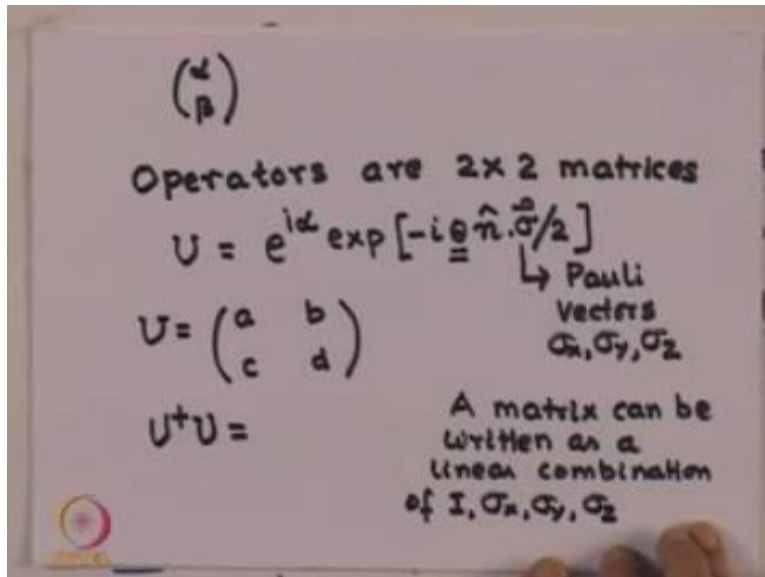 (α
β)
Operators are 2×2 matrices
U = e^{iα} exp[-i θ n̂.σ⃗/2]
↳ Pauli
vectors
σx, σy, σz
U = (a b
c d)
U†U =
A matrix can be
written as a
linear combination
of I, σx, σy, σz